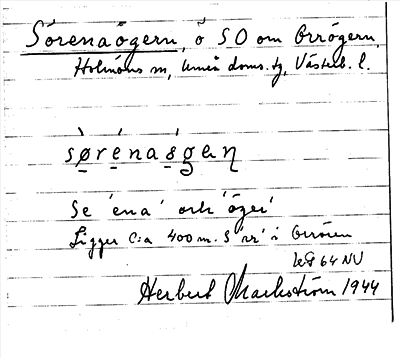 Sörenaögern, ö SO om Orrögern,
Holmöns sn, Umeå doms. tg, Västerb. l.
sørénaǿgen
Se 'ena' och 'öger'
Ligger c:a 400 m. S 'rr' i Orrören
64 NV
Herbert Markström 1944